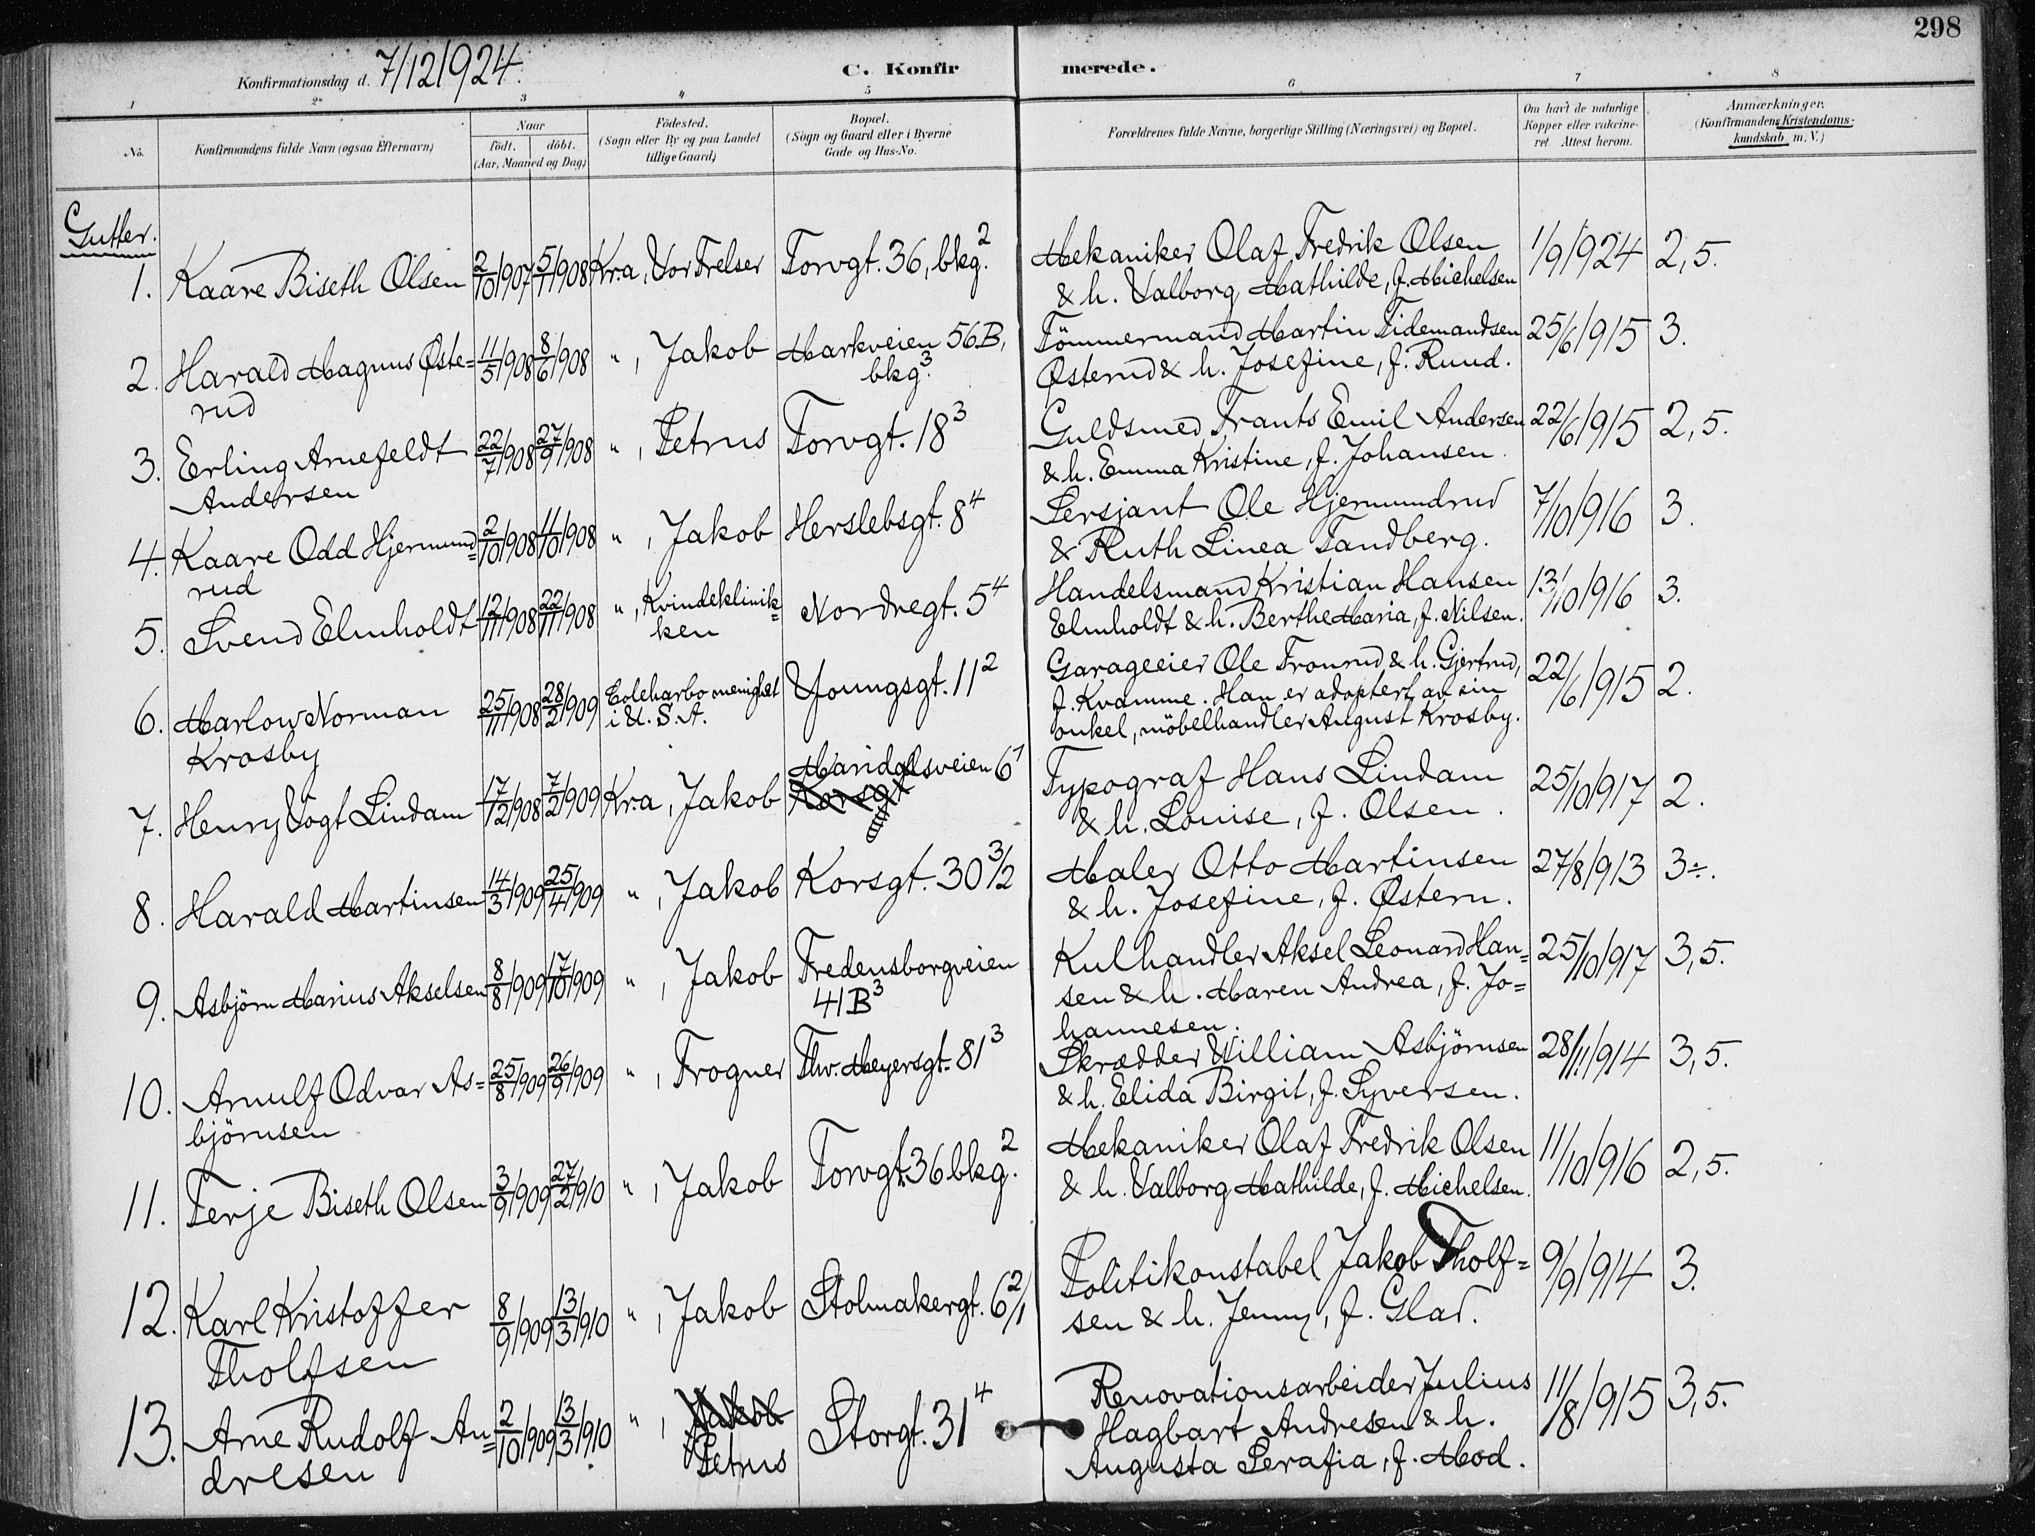 298
Konfirmationsdag d. 7/12 1924.
C. Konfirmerede.
1 2 3 4 5 6 7 8
No. Konfirmandens fulde Navn (ogsaa Efternavn)
Naar
födt. döbt.
(Aar, Maaned og Dag)
Födested.
(Sogn eller By og paa Landet
tillige Gaard)
Bopæl.
(Sogn og Gaard eller i Byerne
Gade og Hus-No.
Forældrenes fulde Navne, borgerlige Stilling (Næringsvei) og Bopæl.
Om havt de naturlige
Kopper eller vakcine-
ret. Attest herom.
Anmærkninger.
(Konfirmandens Kristendoms-
kundskab m. V.)
Gutter.
1. Kaare Biseth Olsen 2/10 1907 5/1 1908 Kr.a, Vor Frelser Torvgt. 36, bkg.2 Mekaniker Olaf Fredrik Olsen 1/9 1924 2,5.
& h. Valborg Mathilde, f. Michelsen
2. Harald Magnus Øste= 11/5 1908 8/6 1908 ", Jakob Markveien 56B, Tömmermand Martin Tidemandsen 25/6 1915 3.
rud bkg.3 Østerud & h. Josefine, f. Ruud.
3. Erling Arnefeldt 22/7 1908 27/9 1908 ", Petrus Torvgt. 18 3 Guldsmed Frants Emil Andersen 22/6 1915 2,5.
Andersen & h. Emma Kristine, f. Johansen.
4. Kaare Odd Hjermund= 2/10 1908 11/10 1908 ", Jakob Herslebsgt. 8 4 Sersjant Ole Hjermundrud 7/10 1916 3.
rud & Ruth Linea Sandberg.
5. Svend Elmholdt 12/11 1908 22/11 1908 ", Kvindeklinik= Nordregt. 5 4 Handelsmand Kristian Hansen 13/10 1916 3.
ken Elmholdt & h. Berthe Maria, f. Nilsen.
6. Marlow Norman 25/11 1908 28/2 1909 menighet Youngsgt. 11 2 Garageeier Ole Tronrud & h. Gjertrud, 22/6 1915 2.
Krosby i U.S.A. f. Kvamme. Han er adoptert av sin
onkel, möbelhandler August Krosby.
7. Henry Vogt Lindam 17/12 1908 7/2 1909 Kr.a, Jakob Maridalsveien 6 1 Typograf Hans Lindam 25/10 1917 2.
Korsgt. & h. Louise, f. Olsen.
8. Harald Martinsen 14/3 1909 25/4 1909 ", Jakob Korsgt. 30 3/2 Maler Otto Martinsen 27/8 1913 3÷.
& h. Josefine, f. Østern.
9. Asbjörn Marius Akselsen 8/8 1909 17/10 1909 ", Jakob Fredensborgveien Kulhandler Aksel Leonard Han= 25/10 1917 3,5.
41B 3 sen & h. Maren Andrea, f. Jo=
hannesen.
10. Arnulf Odvar As= 25/8 1909 26/9 1909 ", Frogner Thv. Meyersgt. 81 3 Skrædder William Asbjörnsen 28/11 1914 3,5.
björnsen & h. Elida Birgit, f. Syversen.
11. Terje Biseth Olsen 3/9 1909 27/2 1910 ", Jakob Torvgt. 36 bkg.2 Mekaniker Olaf Fredrik Olsen 11/10 1916 2,5.
& h. Valborg Mathilde, f. Michelsen.
12. Karl Kristoffer 8/9 1909 13/3 1910 ", Jakob Stolmakergt. 6 2/1 Politikonstabel Jakob Tholf= 9/9 1914 3.
Tholfsen sen & h. Jenny, f. Glad.
13. Arne Rudolf An= 2/10 1909 13/3 1910 ", Jakob Storgt. 31 4 Renovationsarbeider Julius 11/8 1915 3,5.
dresen Petrus Hagbart Andresen & h.
Augusta Serafia, f. Mod.